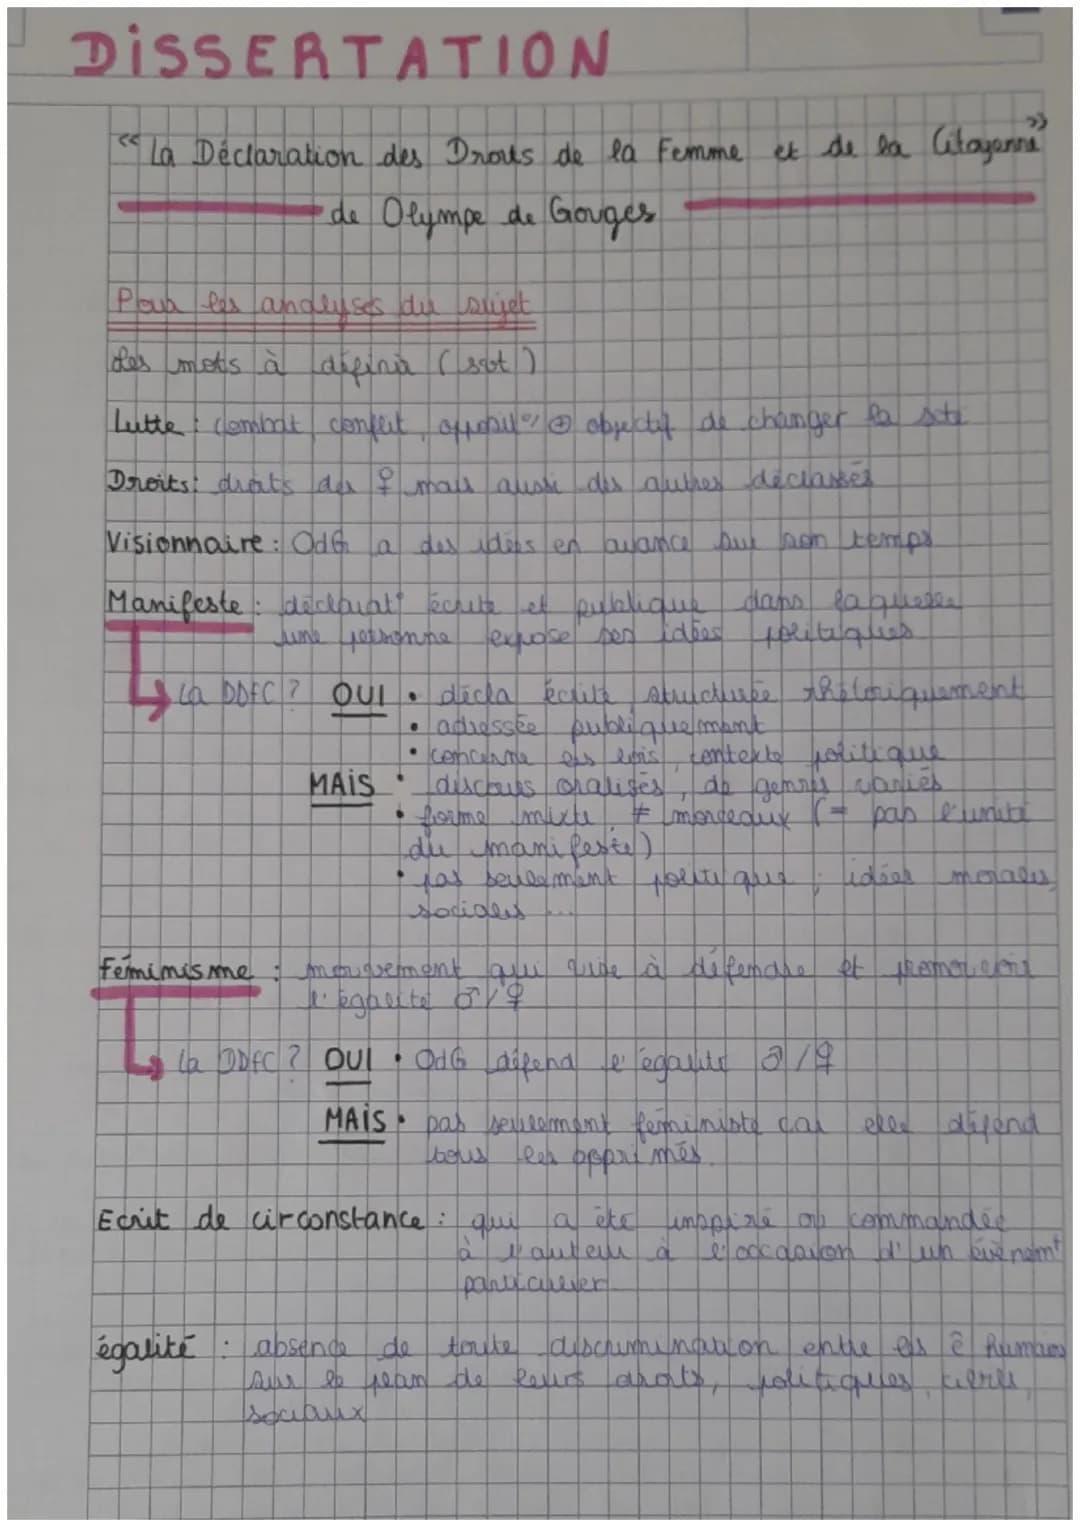 DiSSERTATION
« La Déclaration des Droits de la Femme et de la Citoyenne »
de Olympe de Gouges
Pour les analyses du sujet
les mots à définir ( )
Lutte : combat, conflit, opposit° ⊕ objectif de changer la sté
Droits : droits des ♀ mais aussi des autres déclassés
Visionnaire : OdG a des idées en avance sur son temps
Manifeste : déclarat° écrite et publique dans laquelle
une personne expose ses idées politiques
↳ la DDFC ? OUI • décla écrite, structurée rhétoriquement
• adressée publiquement
• concerne les lois, contexte politique
MAiS • discours oralisés, de genres variés
• forme mixte, ≠ morceaux (= pas l'unité
du manifeste)
• pas seulement politique ; idées morales,
sociales ...
féminisme : mouvement qui vise à défendre et promouvoir
l'égalité ♂/♀
↳ la DDFC ? OUI • OdG défend l'égalité ♂/♀
MAiS • pas seulement féministe car elle défend
tous les opprimés.
Ecrit de circonstance : qui a été inspiré ou commandée
à l'auteur à l'occasion d'un évènemt
particulier.
égalité : absence de toute discrimination entre les ê humains
sur le plan de leurs droits, politiques, civils,
sociaux